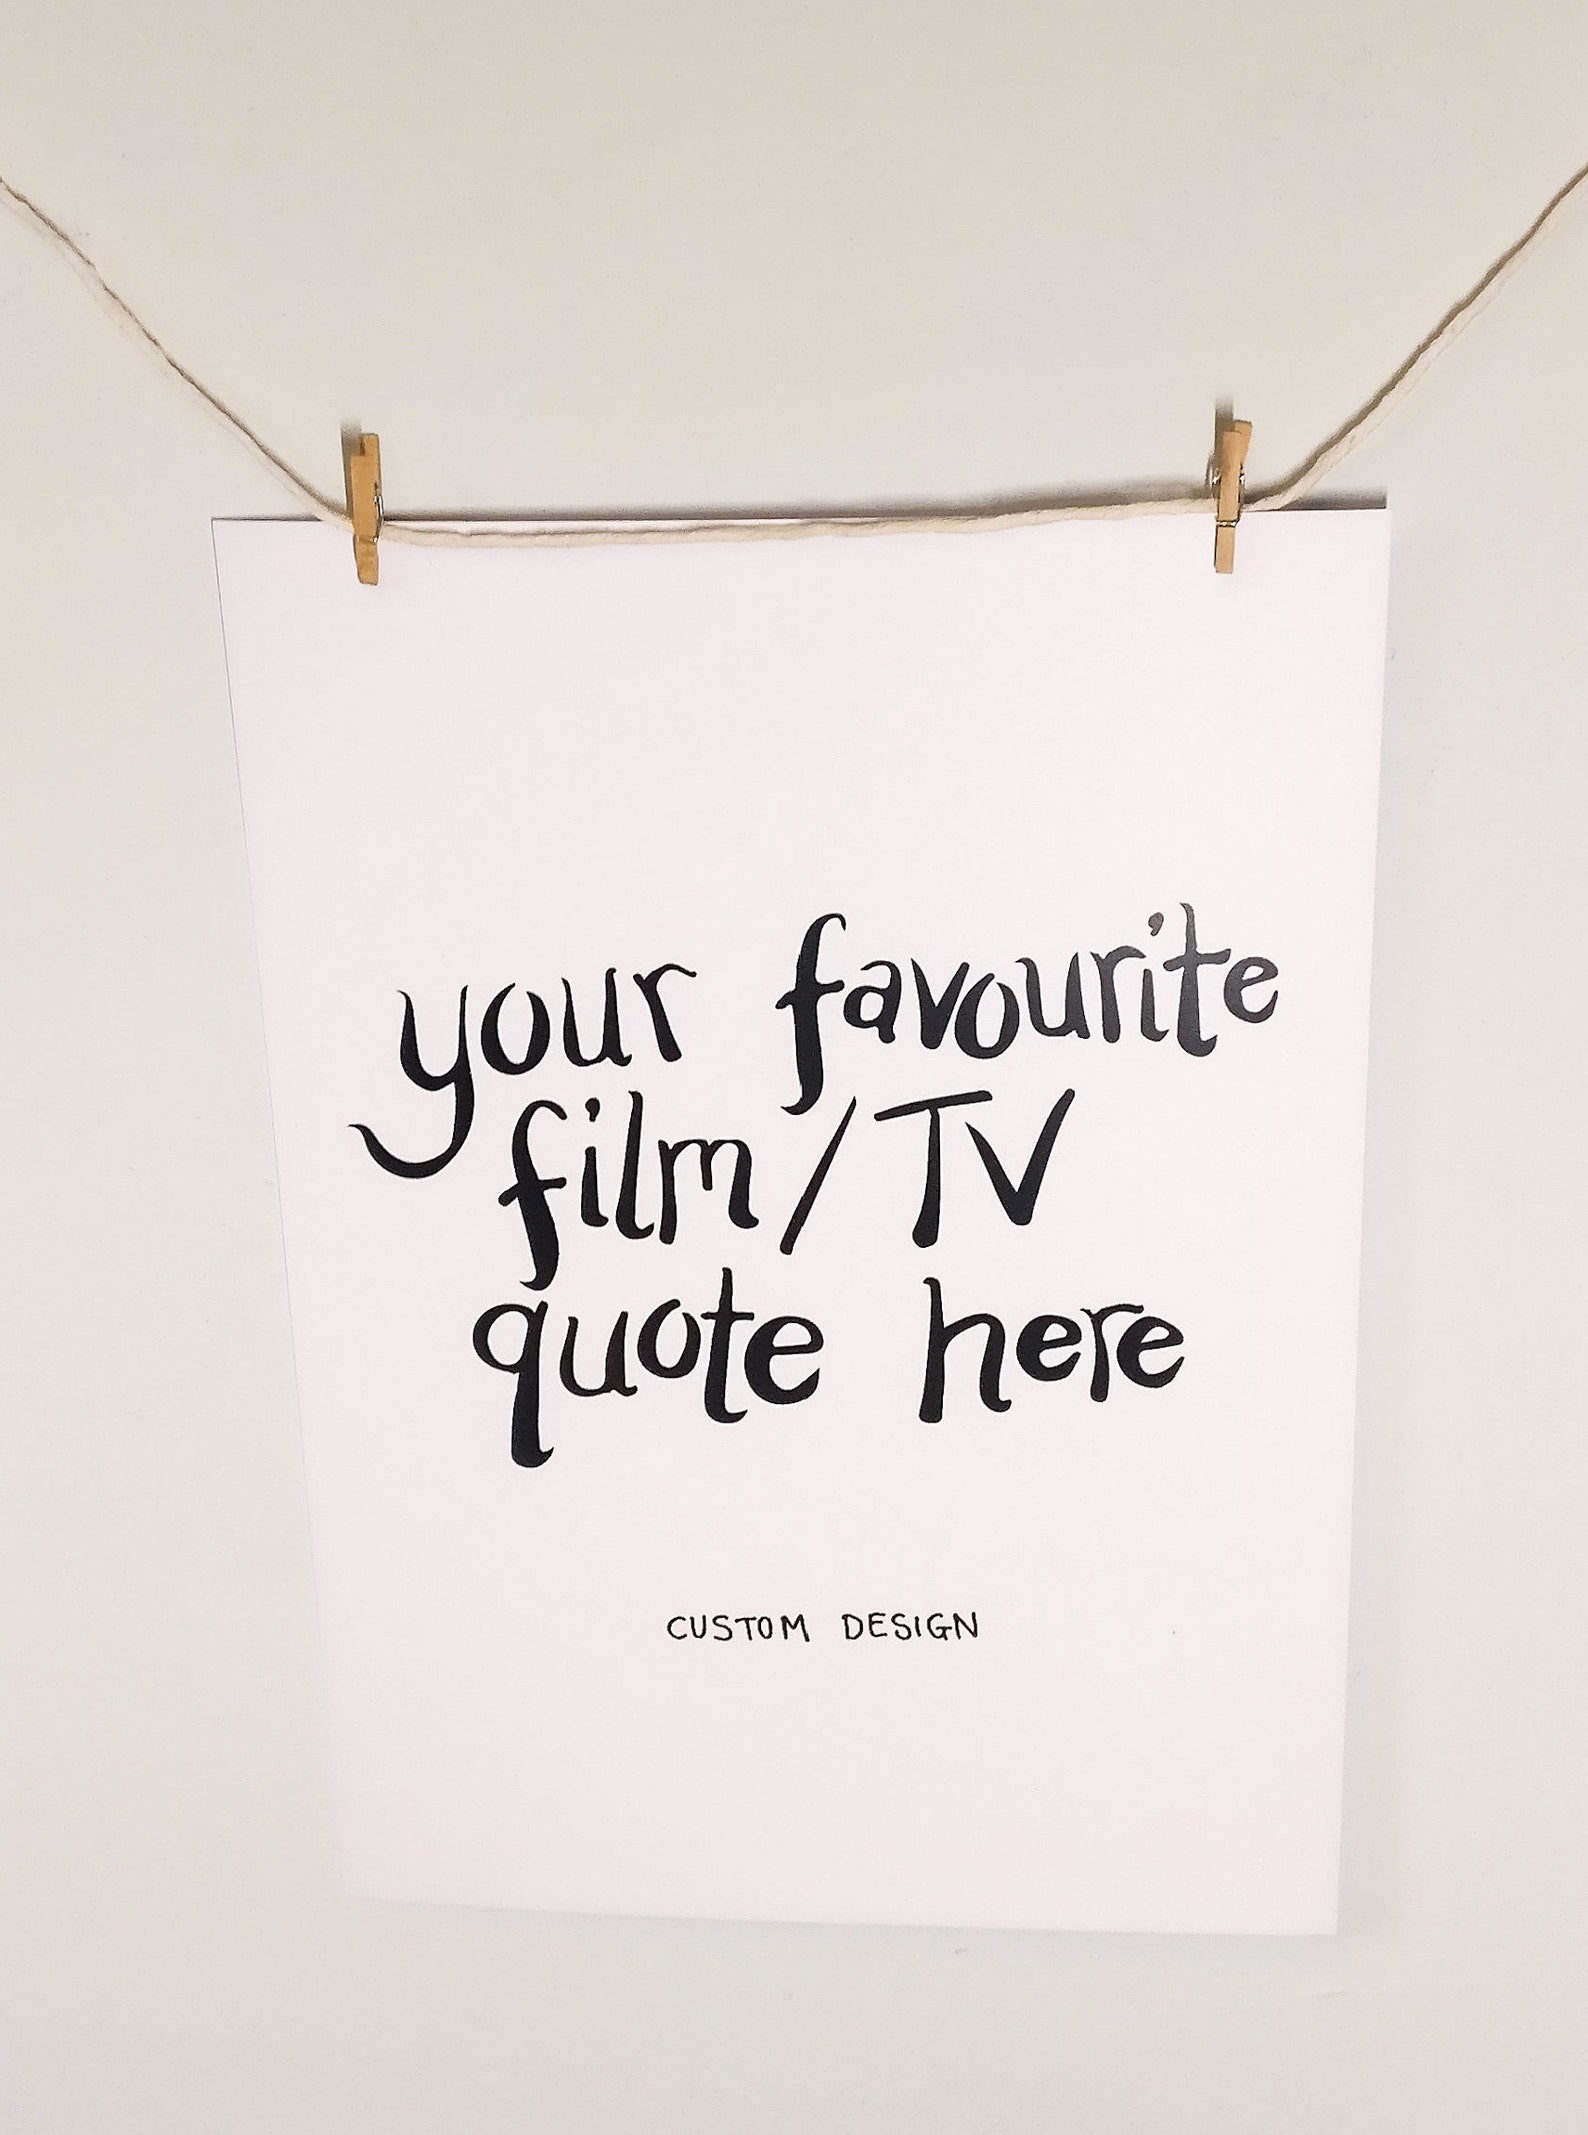 your favourite
film/TV
quote here
CUSTOM DESIGN